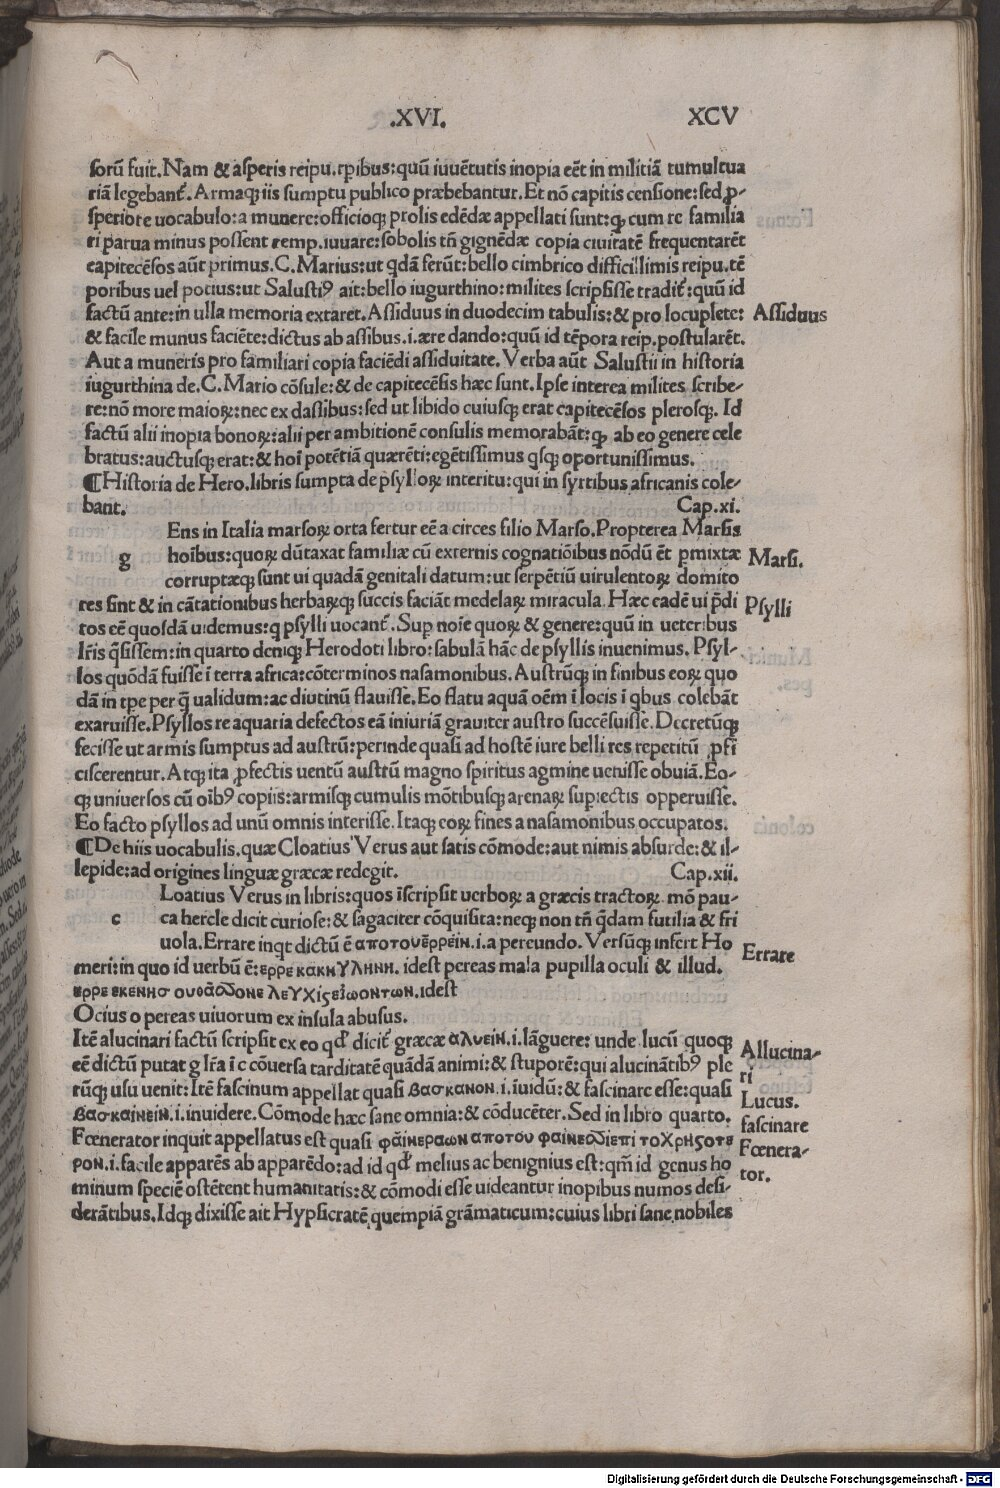 .XVI. XCV
sorũ fuit. Nam & asperis reipu. tꝑibus: quũ iuuẽtutis inopia eẽt in militiã tumultua
riã legebant᷑. Armaqꝫ iis sumptu publico præbebantur. Et nõ capitis censione: sed ꝓ-
speriore uocabulo: a munere: officioqꝫ prolis edẽdæ appellati sunt: ꝙ cum re familia
ri parua minus possent remp. iuuare: sobolis tñ gignẽdæ copia ciuitatẽ frequentarẽt
capitecẽsos aũt primus. C. Marius: ut qdã ferũt: bello cimbrico difficillimis reipu. tẽ
poribus uel potius: ut Salustiꝰ ait: bello iugurthino: milites scripsisse tradit᷑: quũ id
factũ ante: in ulla memoria extaret. Assiduus in duodecim tabulis: & pro locuplete: Assiduus
& facile munus faciẽte: dictus ab assibus. i. ære dando: quũ id tẽpora reip. postularẽt.
Aut a muneris pro familiari copia faciẽdi assiduitate. Verba aũt Salustii in historia
iugurthina de. C. Mario cõsule: & de capitecẽsis hæc sunt. Ipse interea milites scribe-
re: nõ more maioꝝ: nec ex dassibus: sed ut libido cuiusqꝫ erat capitecẽsos plerosqꝫ. Id
factũ alii inopia bonoꝝ: alii per ambitionẽ consulis memorabãt: ꝙ ab eo genere cele
bratus: auctusqꝫ erat: & hoĩ potẽtiã quærẽti: egẽtissimus qsqꝫ oportunissimus.
¶ Historia de Hero. libris sumpta de psylloꝝ interitu: qui in syrtibus africanis cole-
bant. Cap. xi.
Ens in Italia marsoꝝ orta fertur eẽ a circes filio Marso. Propterea Marsis
g hoĩbus: quoꝝ dũtaxat familiæ cũ externis cognatiõibus nõdũ ẽt ꝑmixtæ Marsi.
corruptæqꝫ sunt ui quadã genitali datum: ut serpẽtiũ uirulentoꝝ domito
res sint & in cãtationibus herbaꝝqꝫ succis faciãt medelaꝝ miracula. Hæc eadẽ ui p̃di Psylli
tos eẽ quosdã uidemus: q psylli uocant᷑. Suꝑ noĩe quoꝝ & genere: quũ in ueteribus
lr̃is q̃sissem: in quarto deniqꝫ Herodoti libro: fabulã hãc de psyllis inuenimus. Psyl-
los quõdã fuisse ĩ terra africa: cõterminos nasamonibus. Austrũqꝫ in finibus eoꝝ quo
dã in tꝑe per q̃ ualidum: ac diutinũ flauisse. Eo flatu aquã oẽm ĩ locis ĩ qbus colebãt
exaruisse. Psyllos re aquaria defectos eã iniuriã grauiter austro succẽsuisse. Decretũqꝫ
fecisse ut armis sumptus ad austrũ: perinde quasi ad hostẽ iure belli res repetitũ ꝓfi
ciscerentur. Atqꝫ ita ꝓfectis uentũ austrũ magno spiritus agmine uenisse obuiã. Eo-
qꝫ uniuersos cũ oĩbꝰ copiis: armisqꝫ cumulis mõtibusqꝫ arenaꝝ suꝑiectis opperuisse.
Eo facto psyllos ad unũ omnis interisse. Itaqꝫ eoꝝ fines a nasamonibus occupatos.
¶ De hiis uocabulis. quæ Cloatius Verus aut satis cõmode: aut nimis absurde: & il-
lepide: ad origines linguæ græcæ redegit. Cap. xii.
Loatius Verus in libris: quos ĩscripsit uerboꝝ a græcis tractoꝝ mõ pau-
c ca hercle dicit curiose: & sagaciter cõquisita: neqꝫ non tñ q̃dam futilia & fri
uola. Errare inqt dictũ ẽ αποτουερρειν. i. a pereundo. Versũqꝫ insert Ho Errare
meri: in quo id uerbũ ẽ: ερρε κακη γληνη. idest pereas mala pupilla oculi & illud.
ερρε εκ νησ ου θᾶσσον ελεγχιςε ζωοντων. idest
Ocius o pereas uiuorum ex insula abusus.
Itẽ alucinari factũ scripsit ex eo qđ dicit᷑ græcæ αλυειν. i. lãguere: unde lucũ quoqꝫ Allucina-
eẽ dictũ putat g lr̃a ĩ c cõuersa tarditatẽ quãdã animi: & stuporẽ: qui alucinãtibꝰ ple ri
rũqꝫ usu uenit: Itẽ fascinum appellat quasi βασκανον. i. ĩuidũ: & fascinare esse: quasi Lucus.
βασκαινειν. i. inuidere. Cõmode hæc sane omnia: & cõducẽter. Sed in libro quarto. fascinare
Fœnerator inquit appellatus est quasi φαινεραων απο του φαινεσθαι επι το χρηςοτε Fœnera-
ρον. i. facile apparẽs ab apparẽdo: ad id qđ melius ac benignius est: qm̃ id genus ho tor.
minum speciẽ ostẽtent humanitatis: & cõmodi esse uideantur inopibus numos desi-
derãtibus. Idqꝫ dixisse ait Hypsicratẽ quempiã grãmaticum: cuius libri sane nobiles
Digitalisierung gefördert durch die Deutsche Forschungsgemeinschaft - DFG